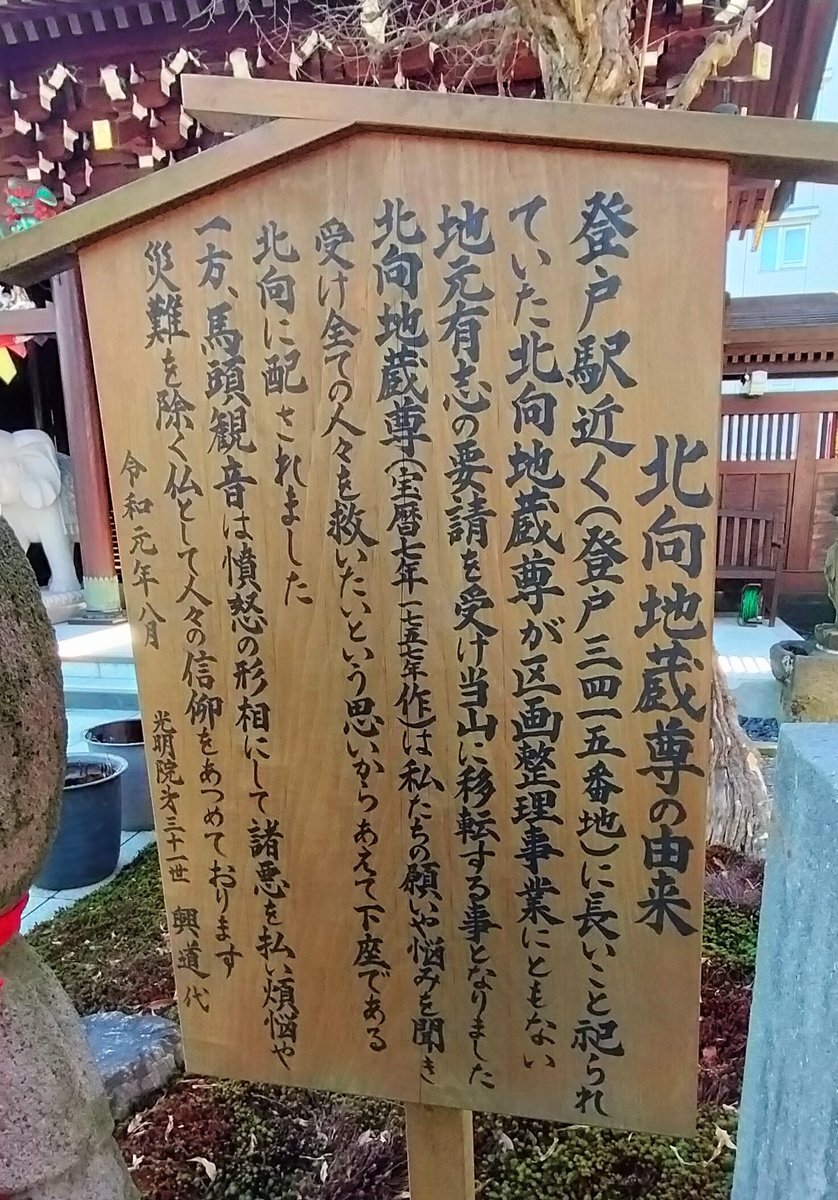 北向地蔵尊の由来
登戸駅近く(登戸三四一五番地)に長いこと祀られ
ていた北向地蔵尊が区画整理事業にともない
地元有志の要請を受け当山に移転する事となりました
北向地蔵尊(宝暦七年一七五七年作)は私たちの願いや悩みを聞き
受け全ての人々を救いたいという思いからあえて下座である
北向に配されました
一方、馬頭観音は憤怒の形相にして諸悪を払い煩悩や
災難を除く仏として人々の信仰をあつめております
令和元年八月 光明院才三十一世 興道代